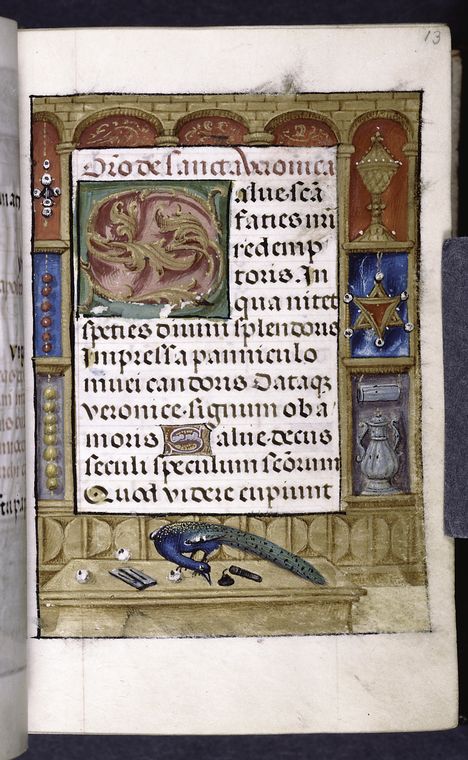 13
Orō de sancta veronica
Salue scā
facies nrī
redemp
toris. In
qua nitet
species diuini splendoris
Impressa panniculo
niuei candoris Dataqꝫ
veronice signum ob a
moris Salue decus
seculi speculum scōrum
Quod videre cupiunt